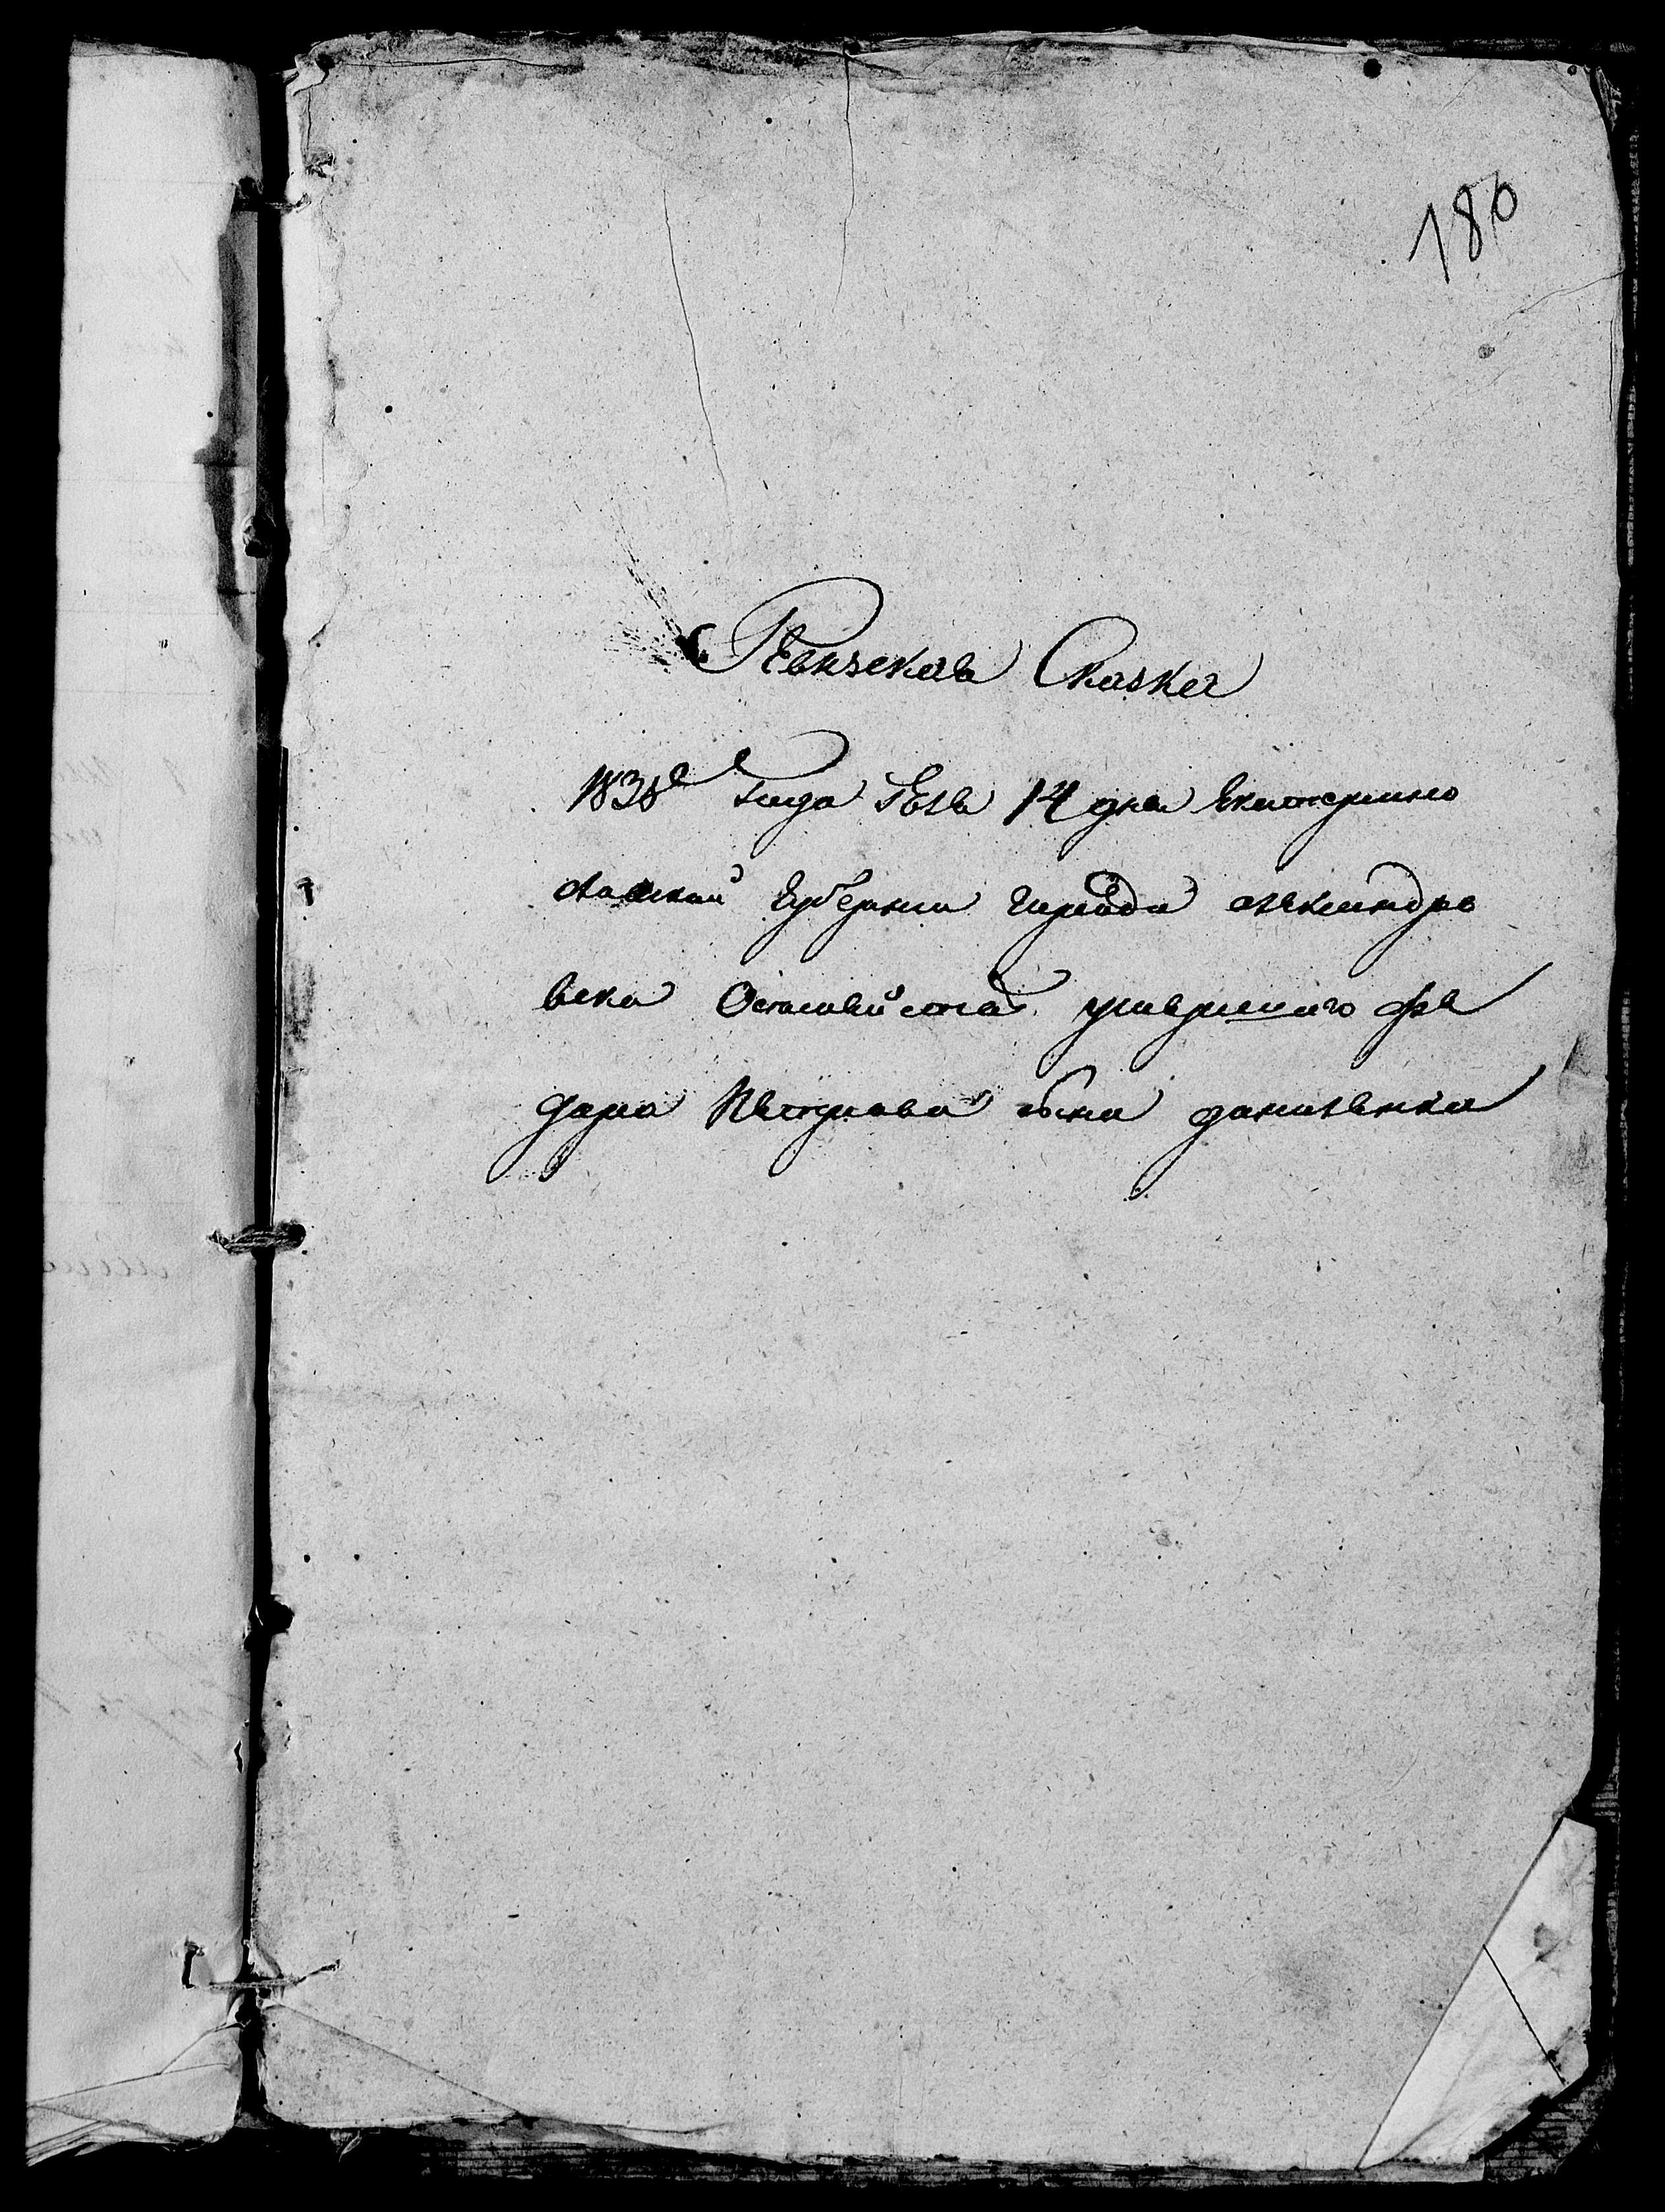 180
Ревизская Сказка
1838го Года Геля 14 дня Екатерино
славской Губернии города александро
вска умершаго Фе
дора Петрова сына даниленка